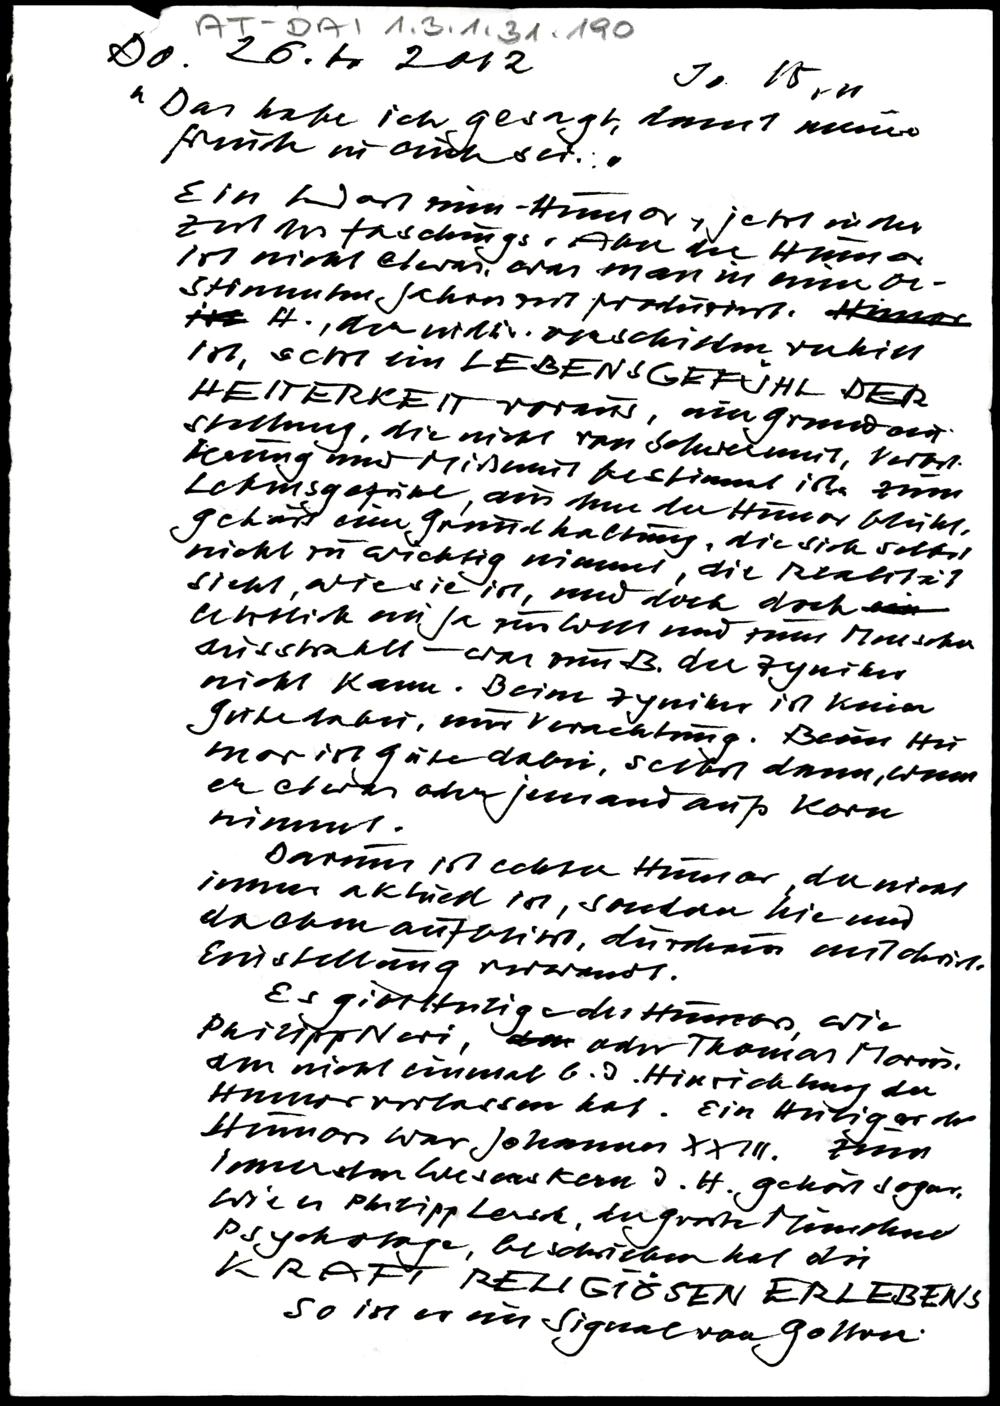 AT-DAI 1.3.1.31.190
Do. 26. 2012
Jo 15,11
"Das habe ich gesagt, damit meine
Freude in euch sei...
Ein Wort zum Humor, jetzt in der
Zeit des Faschings. Aber der Humor
ist nicht etwas, was man in einer be-
stimmten Jahreszeit produziert. Humor
ist H., der individ. verschieden
ist, setzt ein LEBENSGEFÜHL DER
HEITERKEIT voraus, eine Grundein
stellung, die nicht von Schwermut, Verbit
terung und Mißmut bestimmt ist. Zum
Lebensgefühl, aus dem der Humor blüht,
gehört eine Grundhaltung, die sich selbst
nicht zu wichtig nimmt, die Realität
sieht, wie sie ist, und doch doch ein
ehrlich ein Ja zur Welt und zum Menschen
ausstrahlt – was zum B. der Zyniker
nicht kann. Beim Zyniker ist keine
Güte dabei, nur Verachtung. Beim Hu
mor ist Güte dabei, selbst dann, wenn
er etwas oder jemand aufs Korn
nimmt.
Darum ist echter Humor, der nicht
immer aktuell ist, sondern hie und
da eben aufblitzt, durchaus mit christl.
Einstellung verwandt.
Es gibt Heilige des Humors, wie
Philipp Neri, oder Thomas Morus,
den nicht einmal b. d. Hinrichtung der
Humor verlassen hat. Ein Heiliger des
Humors war Johannes XXIII. Zum
innersten Wesenskern d. H. gehört sogar,
wie es Philipp Lersch, der große Münchner
Psychologe, beschrieben hat die
KRAFT RELIGIÖSEN ERLEBENS
So ist er ein Signal von Gottes